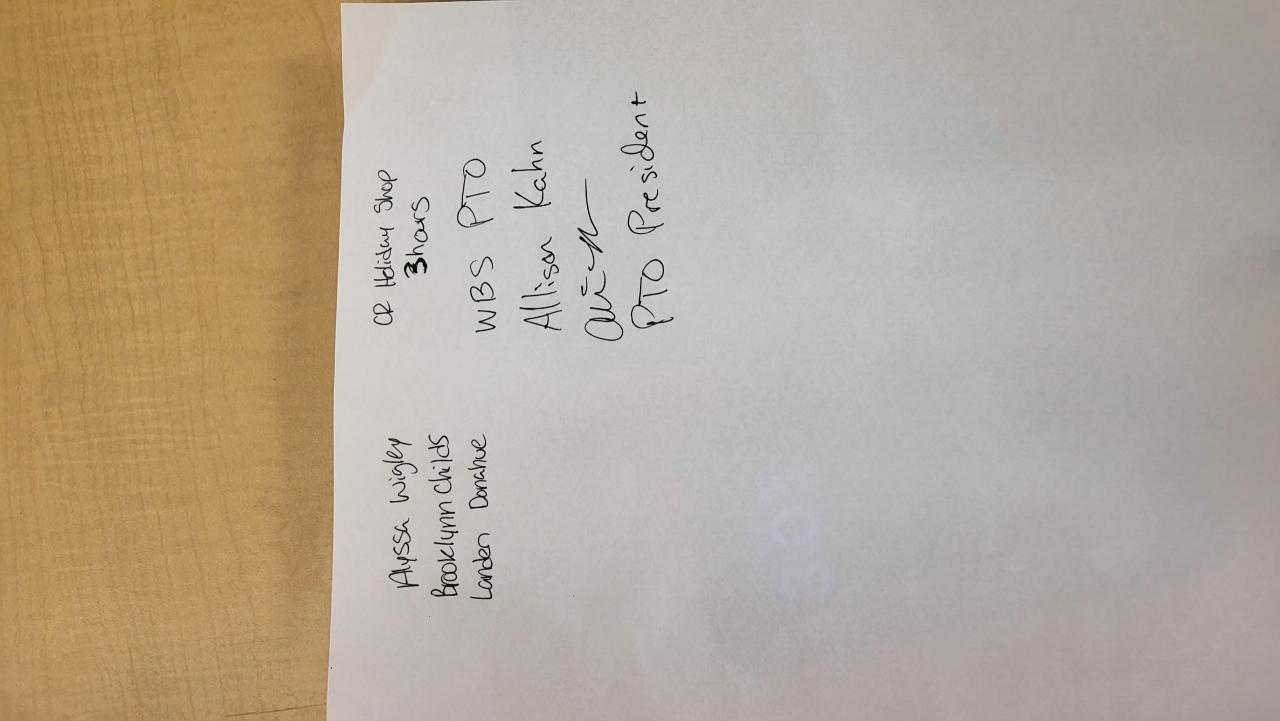 Alyssa Wigley
Brooklynn Childs
Landen Donahue
CR Holiday Shop
3 hours
WBS PTO
Allison Kahn
PTO President